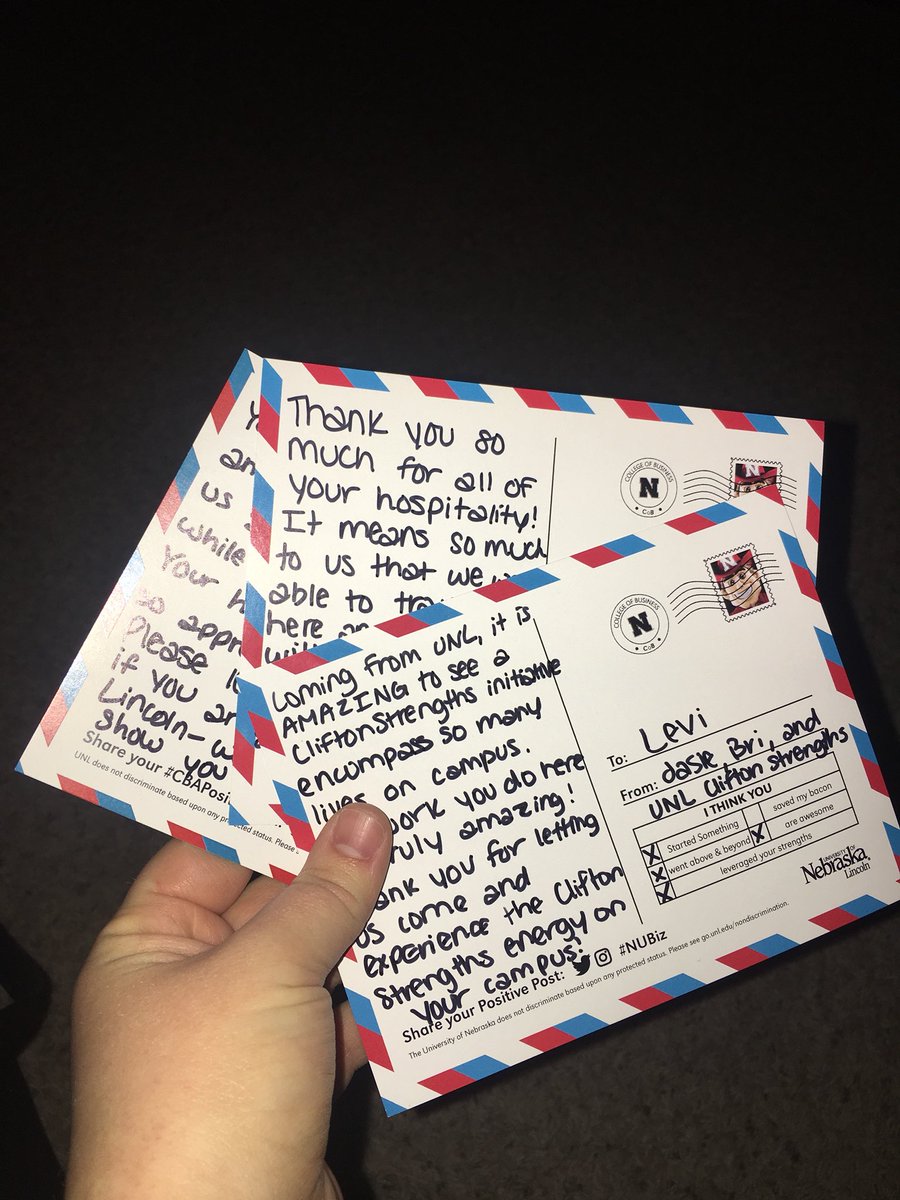 Y
an
us
while
Your h
so appr
Please l
if you ar
Lincoln- w
show you
Share your #CBAPosi
UNL does not discriminate based upon any protected status. Please
Thank you so
much for all of
your hospitality!
It means so much
to us that we w
able to tra
here an
COLLEGE OF BUSINESS
N
• CoB •
N
Coming from UNL, it is
AMAZING to see a
CliftonStrengths initiative
encompass so many
lives on campus.
work you do here
truly amazing!
ank you for letting
us come and
experience the Clifton
Strengths energy on
your campus!
Share your Positive Post: #NUBiz
The University of Nebraska does not discriminate based upon any protected status. Please see go.unl.edu/nondiscrimination.
COLLEGE OF BUSINESS
N
• CoB •
N
To: Levi
From: Jasie, Bri, and
UNL Clifton Strengths
I THINK YOU
X Started Something saved my bacon
X went above & beyond X are awesome
X leveraged your strengths
UNIVERSITY OF
Nebraska
Lincoln